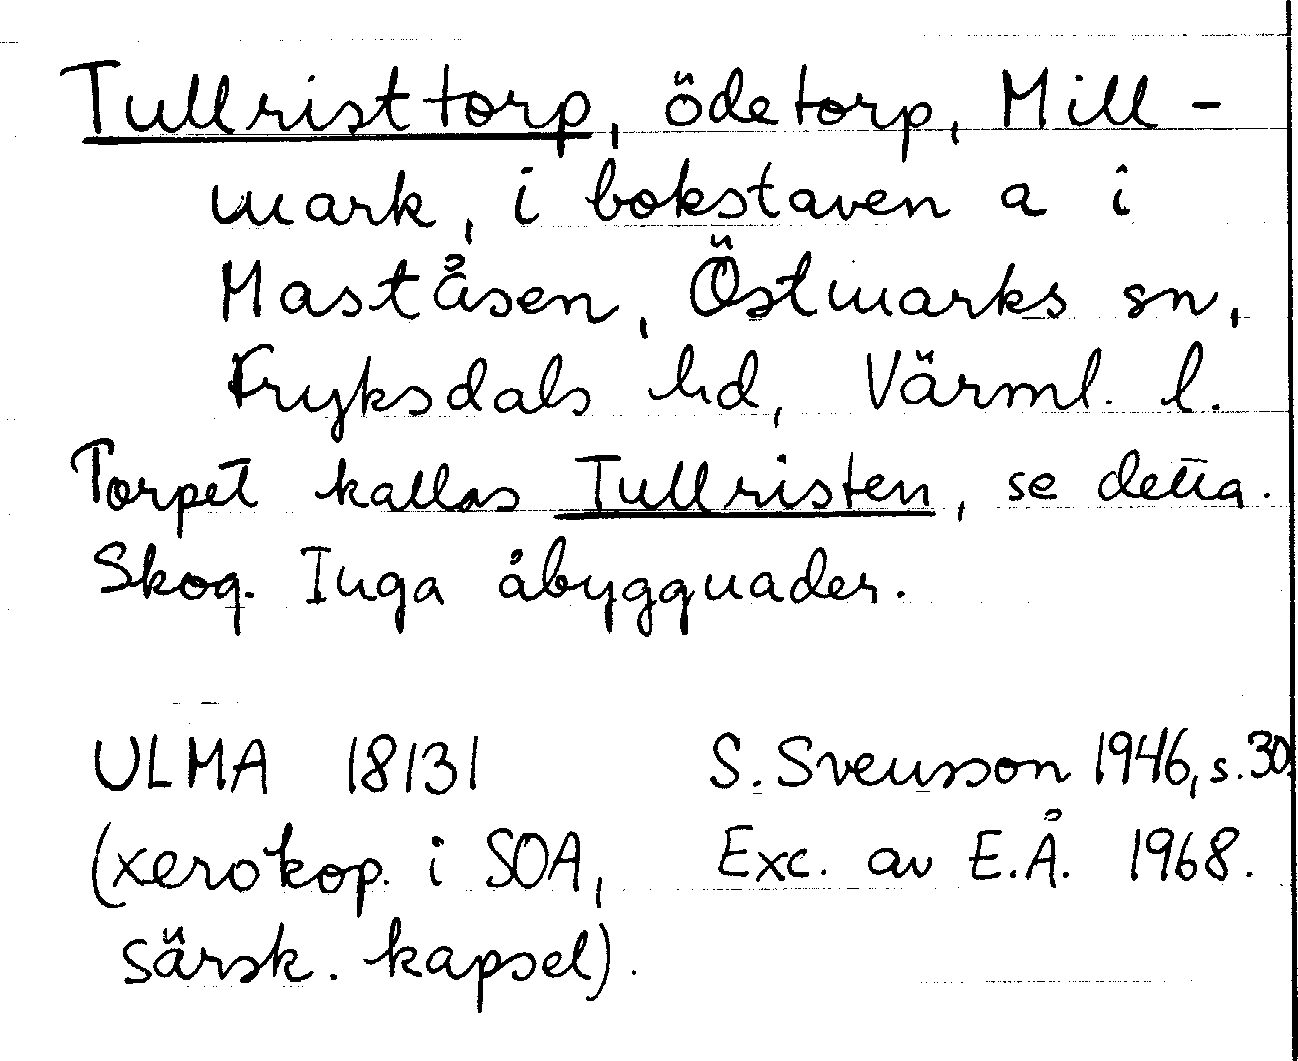 Tullristtorp, ödetorp, Mill-
mark, i bokstaven a i
Maståsen, Östmarks sn,
Fryksdals hd, Värml. l.
Torpet kallas Tullristen, se detta.
Skog. Inga åbyggnader.
ULMA 18131 S. Svensson 1946, s. 30.
(xerokop. i SOA, Exc. av E.Å. 1968.
särsk. kapsel).